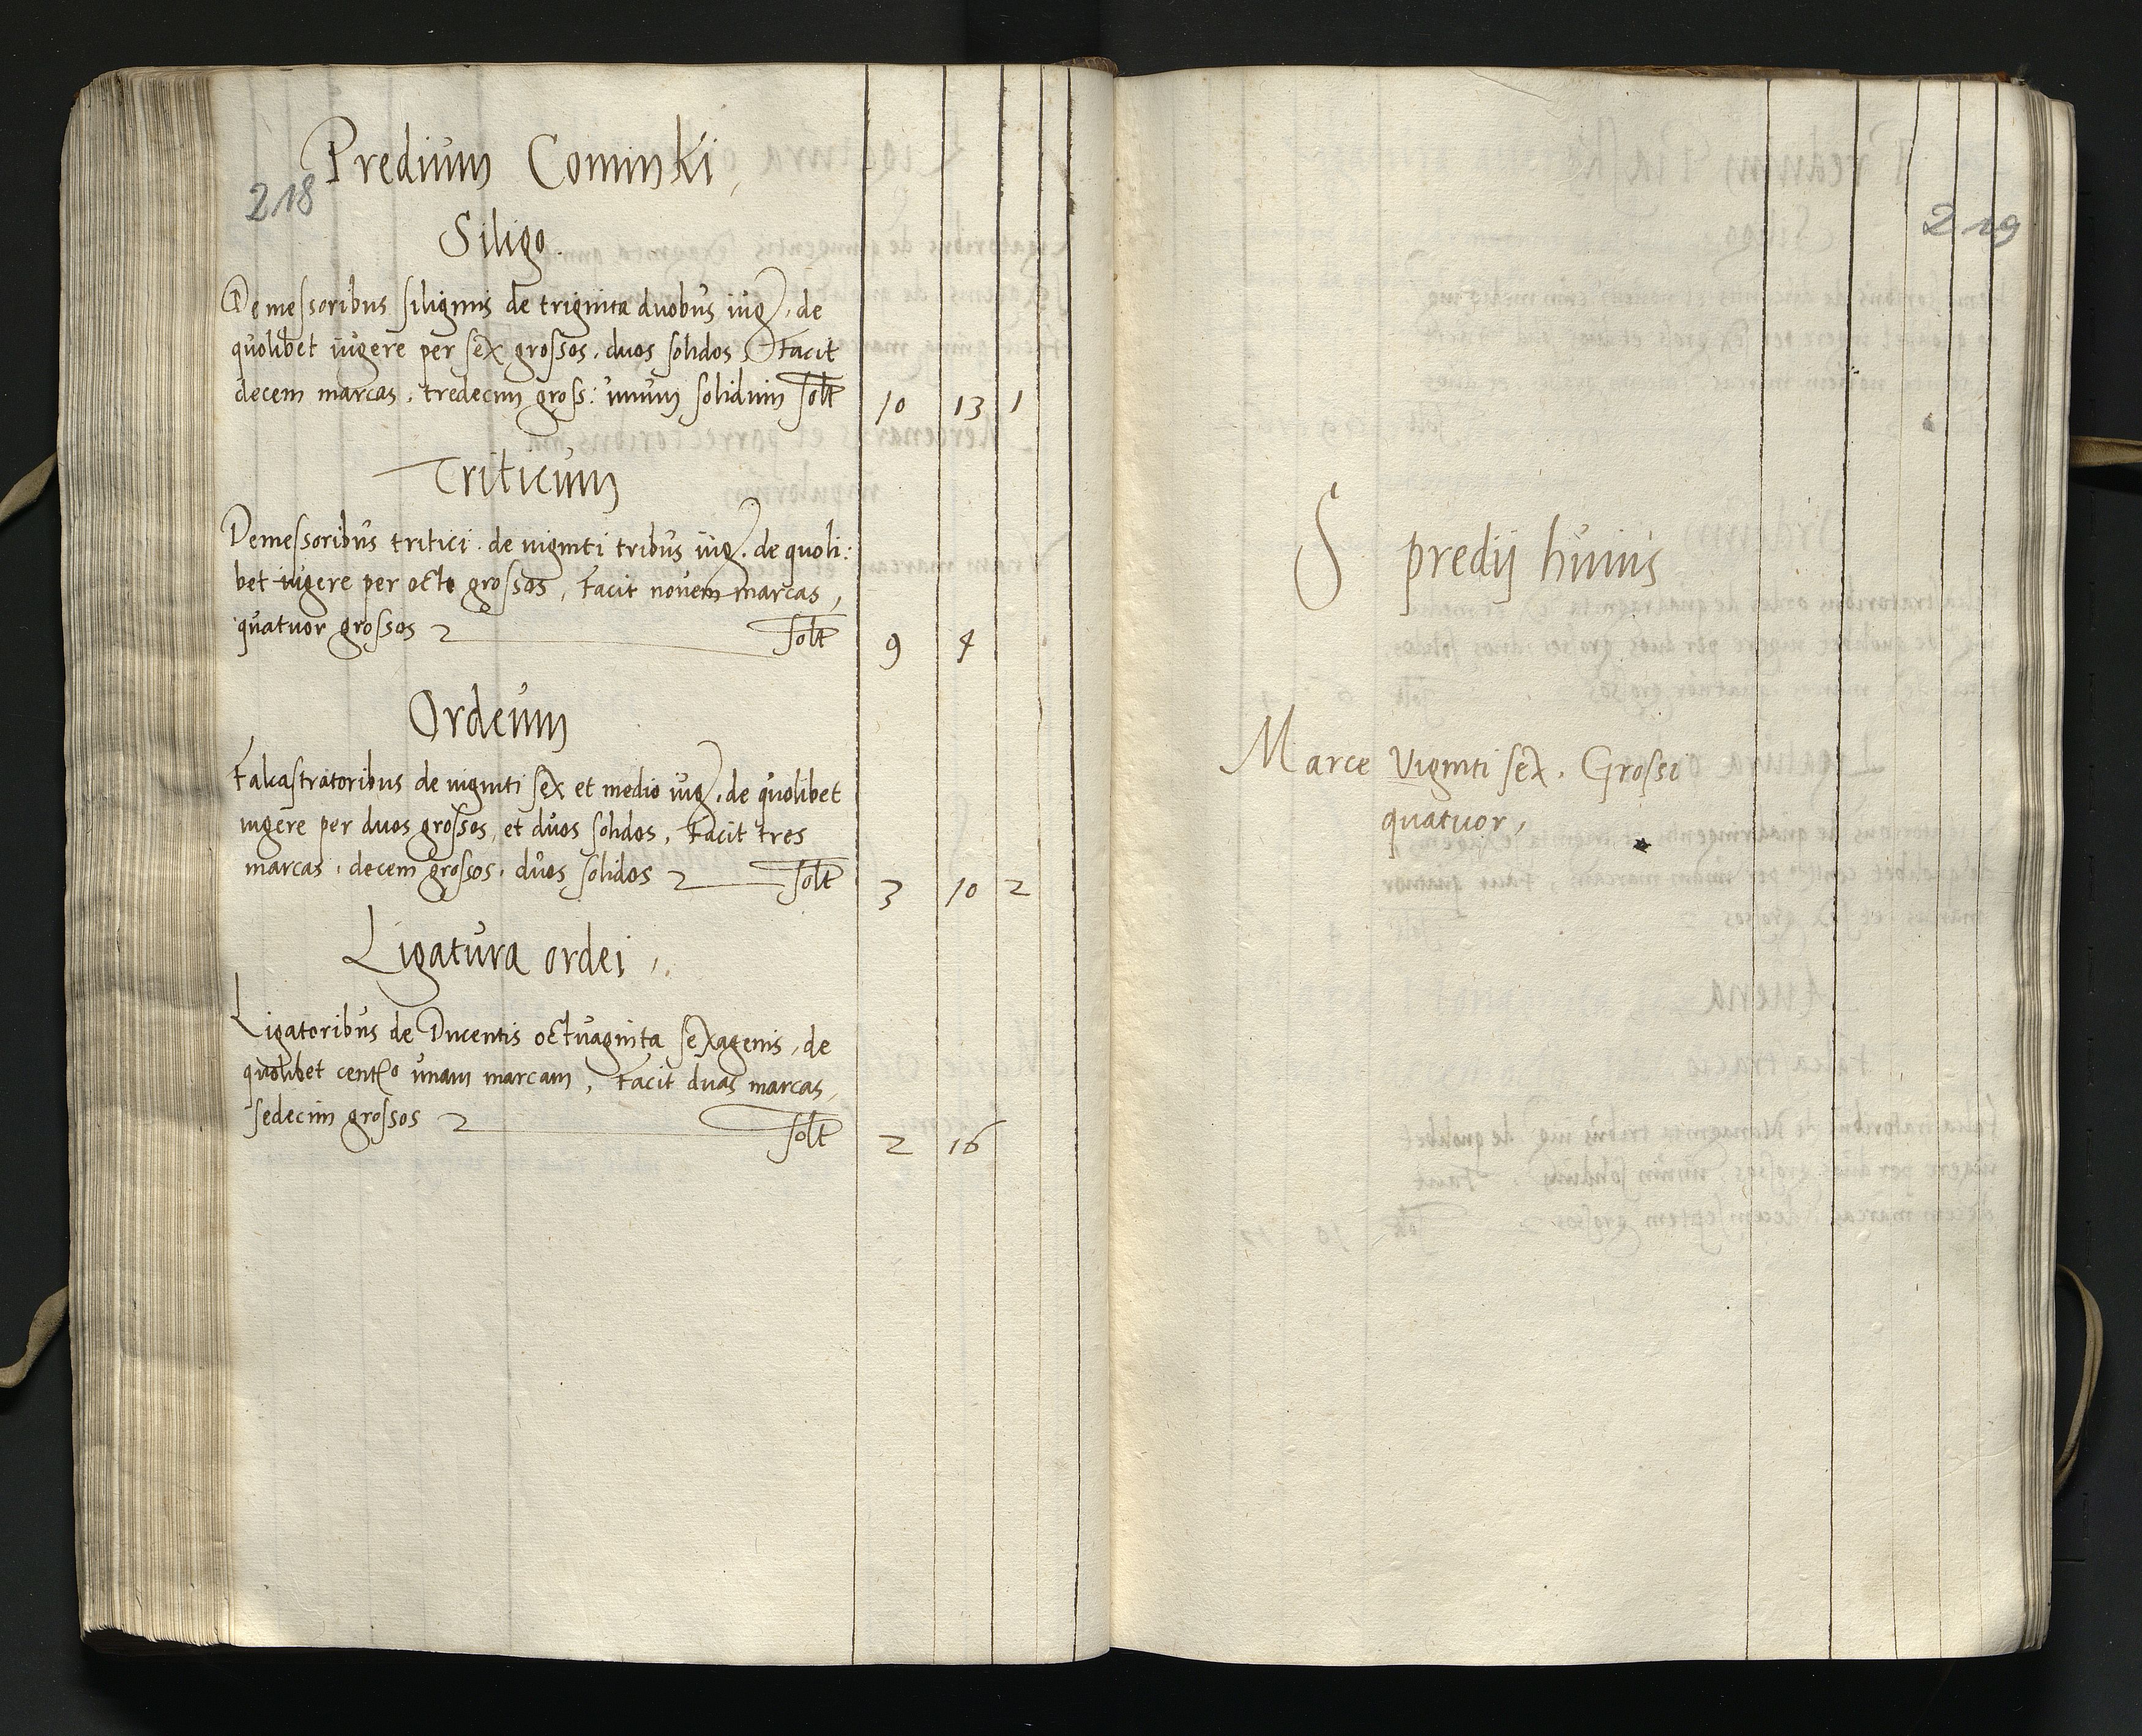 Predium Cominki,
218
Siligo.
Demessoribus siliginis de triginta duobus iug. de
quolibet iugere per sex grossos, duos solidos, Facit
decem marcas, tredecim gross: unum solidum solt 10 13 1
Triticum
Demessoribus tritici de viginti tribus iug. de quoli:
bet iugere per octo grossos, Facit novem marcas,
quatuor grossos solt 9 4
Ordeum
Falcastratoribus de viginti sex et medio iug. de quolibet
iugere per duos grossos, et duos solidos, Facit tres
marcas, decem grossos, duos solidos solt 3 10 2
Ligatura ordei,
Ligatoribus de Ducentis octuaginta sexagenis, de
quolibet cento unam marcam, Facit duas marcas,
sedecim grossos solt 2 16
219
S predij huius
Marce Viginti sex, Grossi
quatuor,